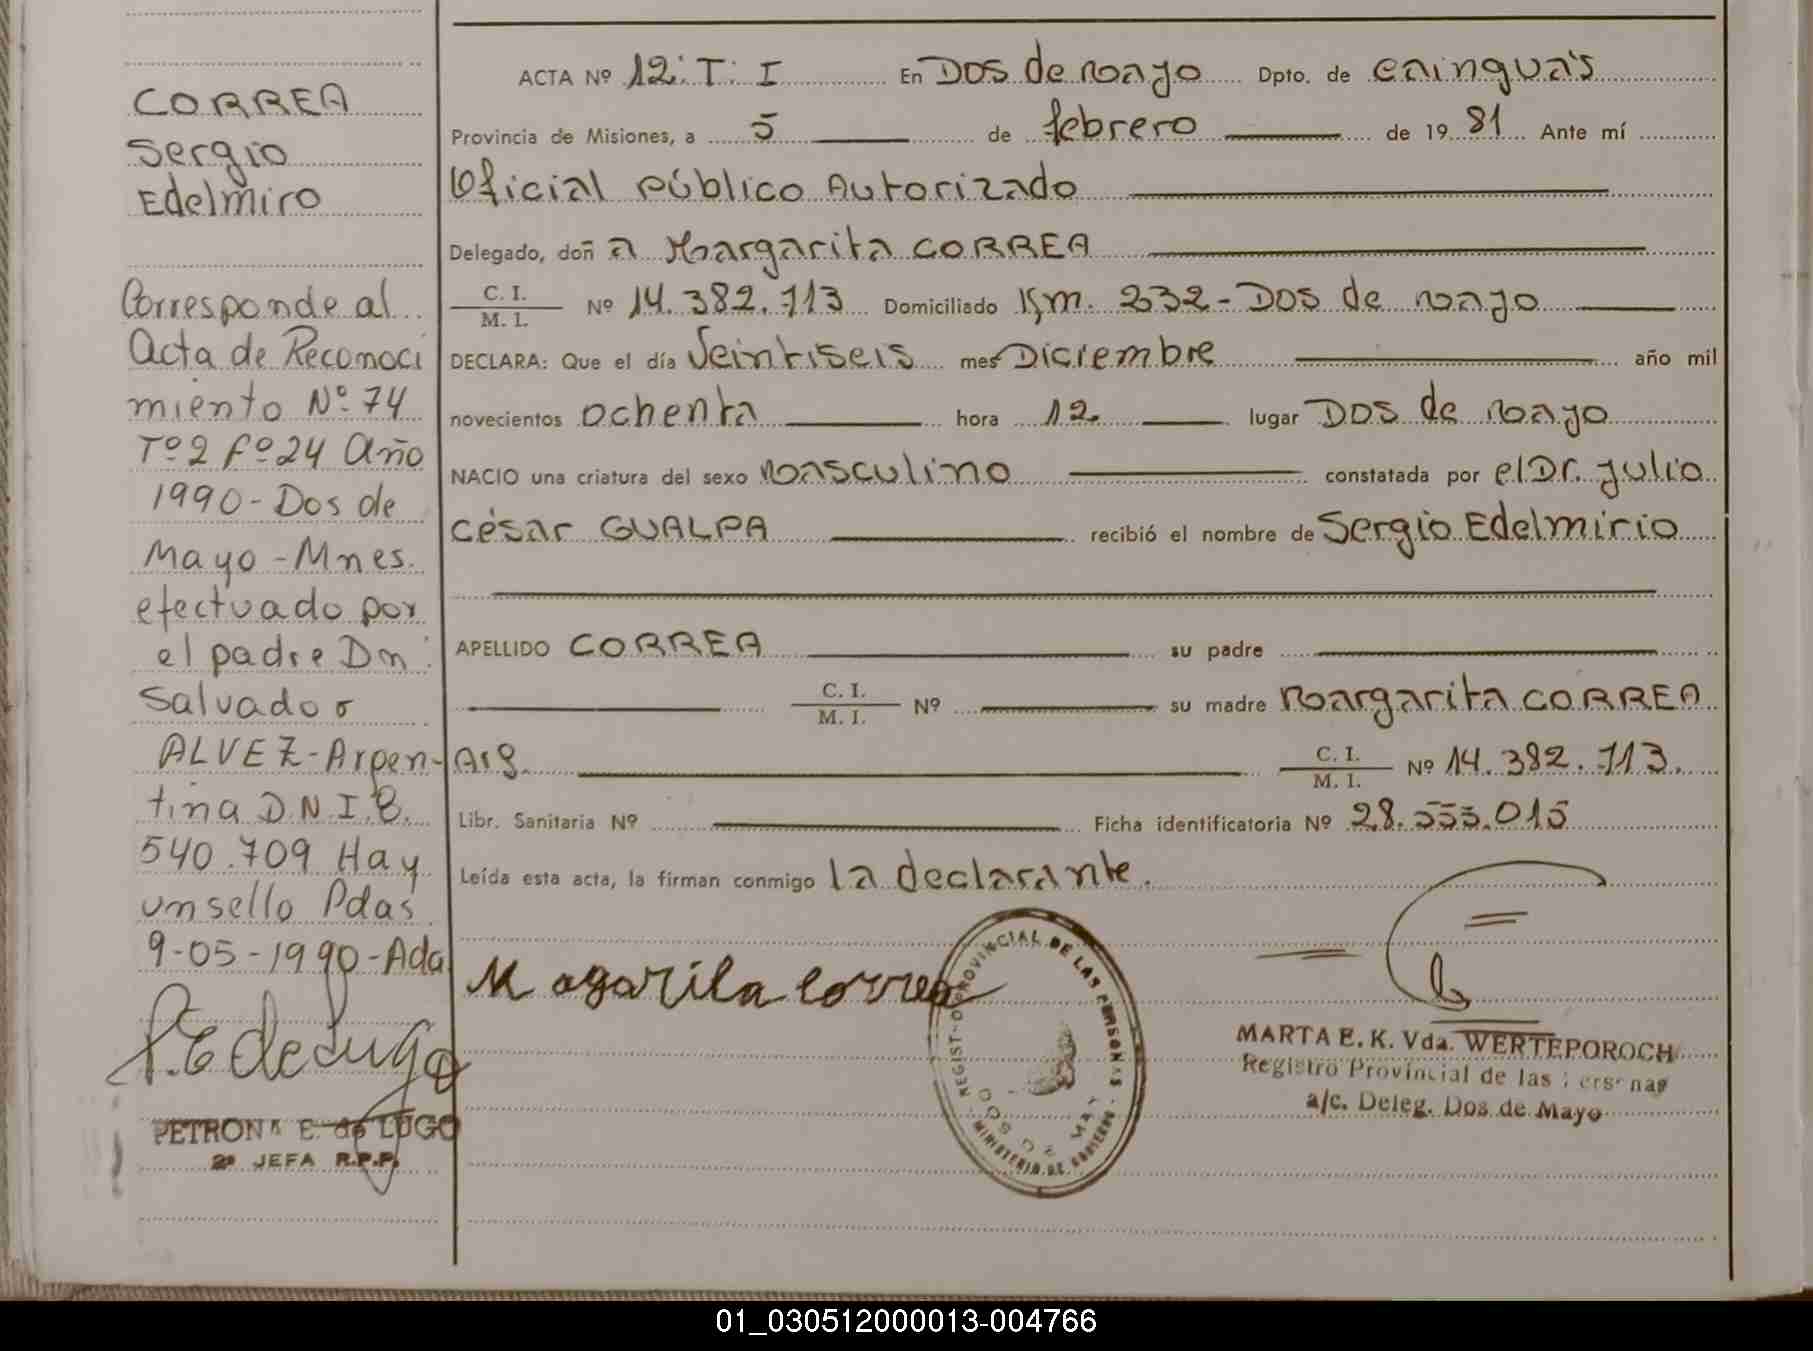 CORREA
Sergio
Edelmiro
Corresponde al
Acta de Reconoci
miento Nº 74
Tº 2 Fº 24 Año
1990 - Dos de
Mayo - Mnes.
efectuado por
el padre Dn
Salvador
ALVEZ - Argen-
tina D.N.I. 8.
540.709 Hay
un sello Pdas
9-05-1990 - Ada
P. E de Lugo
PETRONA E. de LUGO
2ª JEFA R.P.P.
ACTA Nº 12: T: I En Dos de Mayo Dpto. de Cainguás
Provincia de Misiones, a 5 de febrero de 19 81 Ante mí
Oficial Público Autorizado
Delegado, doñ a Margarita CORREA
C. I. / M. I. Nº 14.382.713 Domiciliado Km. 232 - Dos de Mayo
DECLARA: Que el día Veintiseis mes Diciembre año mil
novecientos ochenta hora 12. lugar Dos de Mayo
NACIO una criatura del sexo Masculino constatada por el Dr. Julio
César GUALPA recibió el nombre de Sergio Edelmirio
APELLIDO CORREA su padre
C. I. / M. I. Nº su madre Margarita CORREA
Arg. C. I. / M. I. Nº 14.382.713.
Libr. Sanitaria Nº Ficha identificatoria Nº 28.553.015
Leída esta acta, la firman conmigo la declarante.
Magarita Correa
REGISTRO PROVINCIAL DE LAS PERSONAS
MINISTERIO DE GOBIERNO
DOS DE MAY
MARTA E. K. Vda. WERTEPOROCH
Registro Provincial de las Personas
a/c. Deleg. Dos de Mayo
01_030512000013-004766